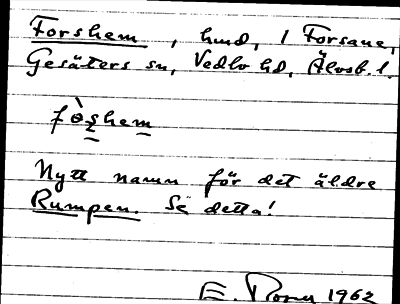 Forshem, hmd, 1 Forsane,
Gesäters sn, Vedbo hd, Älvsb. l.
fò̱ṣhem̱
Nytt namn för det äldre
Rumpen. Se detta!
E. 1962